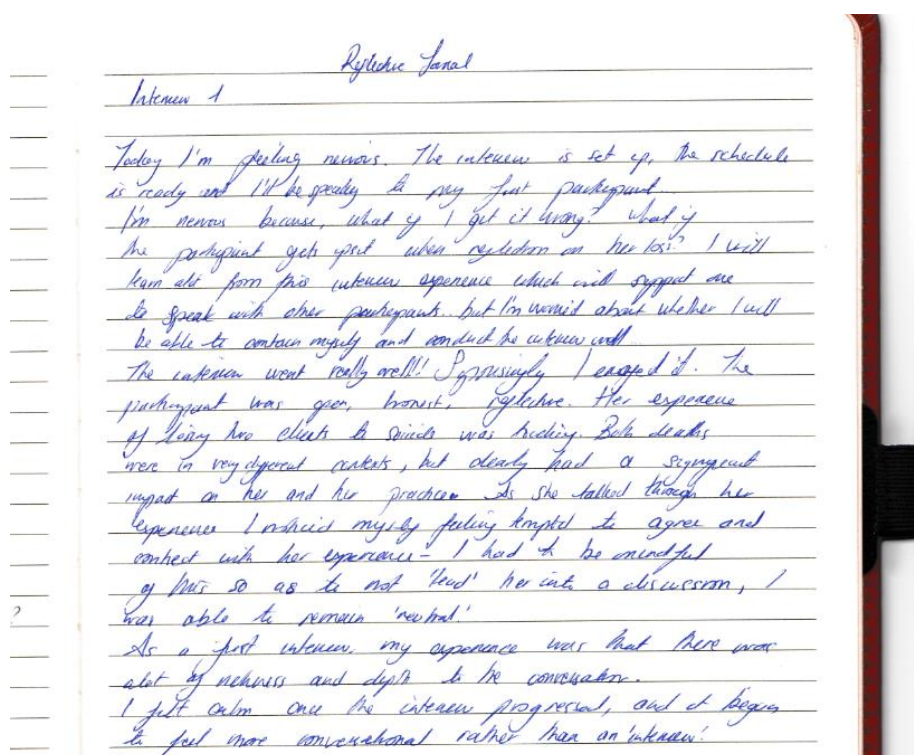 Reflective Jornal
Interview 1
Today I'm feeling nervous. The interview is set up, the schedule
is ready and I'll be speaking to my first participant...
I'm nervous because, what if I get it wrong? What if
the participant gets upset when reflection on her loss? I will
learn alot from this interview experience which will support me
to speak with other participants.. but I'm worried about whether I will
be able to contain myself and conduct the interview well...
The interview went really well! Surprisingly I enjoyed it. The
participant was open, honest, reflective. Her experience
of losing two clients to suicide was touching. Both deaths
were in very different contexts, but clearly had a significant
impact on her and her practice. As she talked through her
experiences I noticed myself feeling tempted to agree and
connect with her experience - I had to be mindful
of this so as to not 'lead' her into a discussion, I
was able to remain 'neutral'.
?
As a first interview, my experience was that there was
alot of richness and depth to the conversation.
I felt calm once the interview progressed, and it began
to feel more conversational rather than an 'interview'.